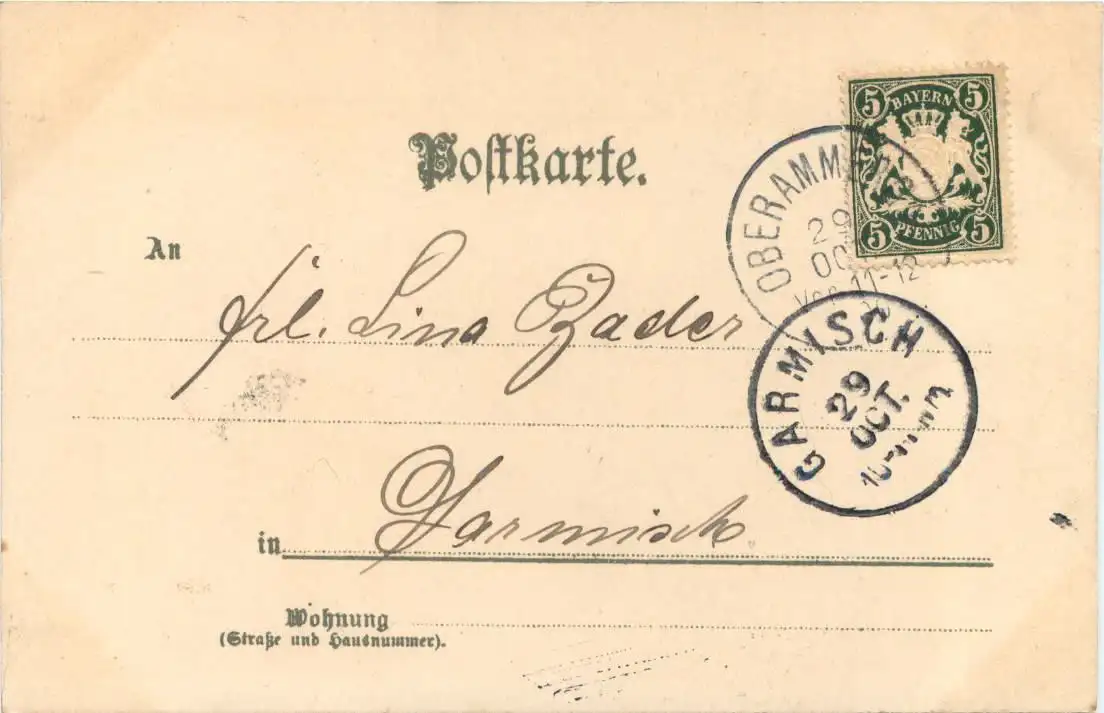 Postkarte.
5 BAYERN 5
5 PFENNIG 5
OBERAMM
29
OC
11-12
An
frl. Lina Bader
GARMISCH
29
OCT.
in Garmisch.
Wohnung
(Straße und Hausnummer).